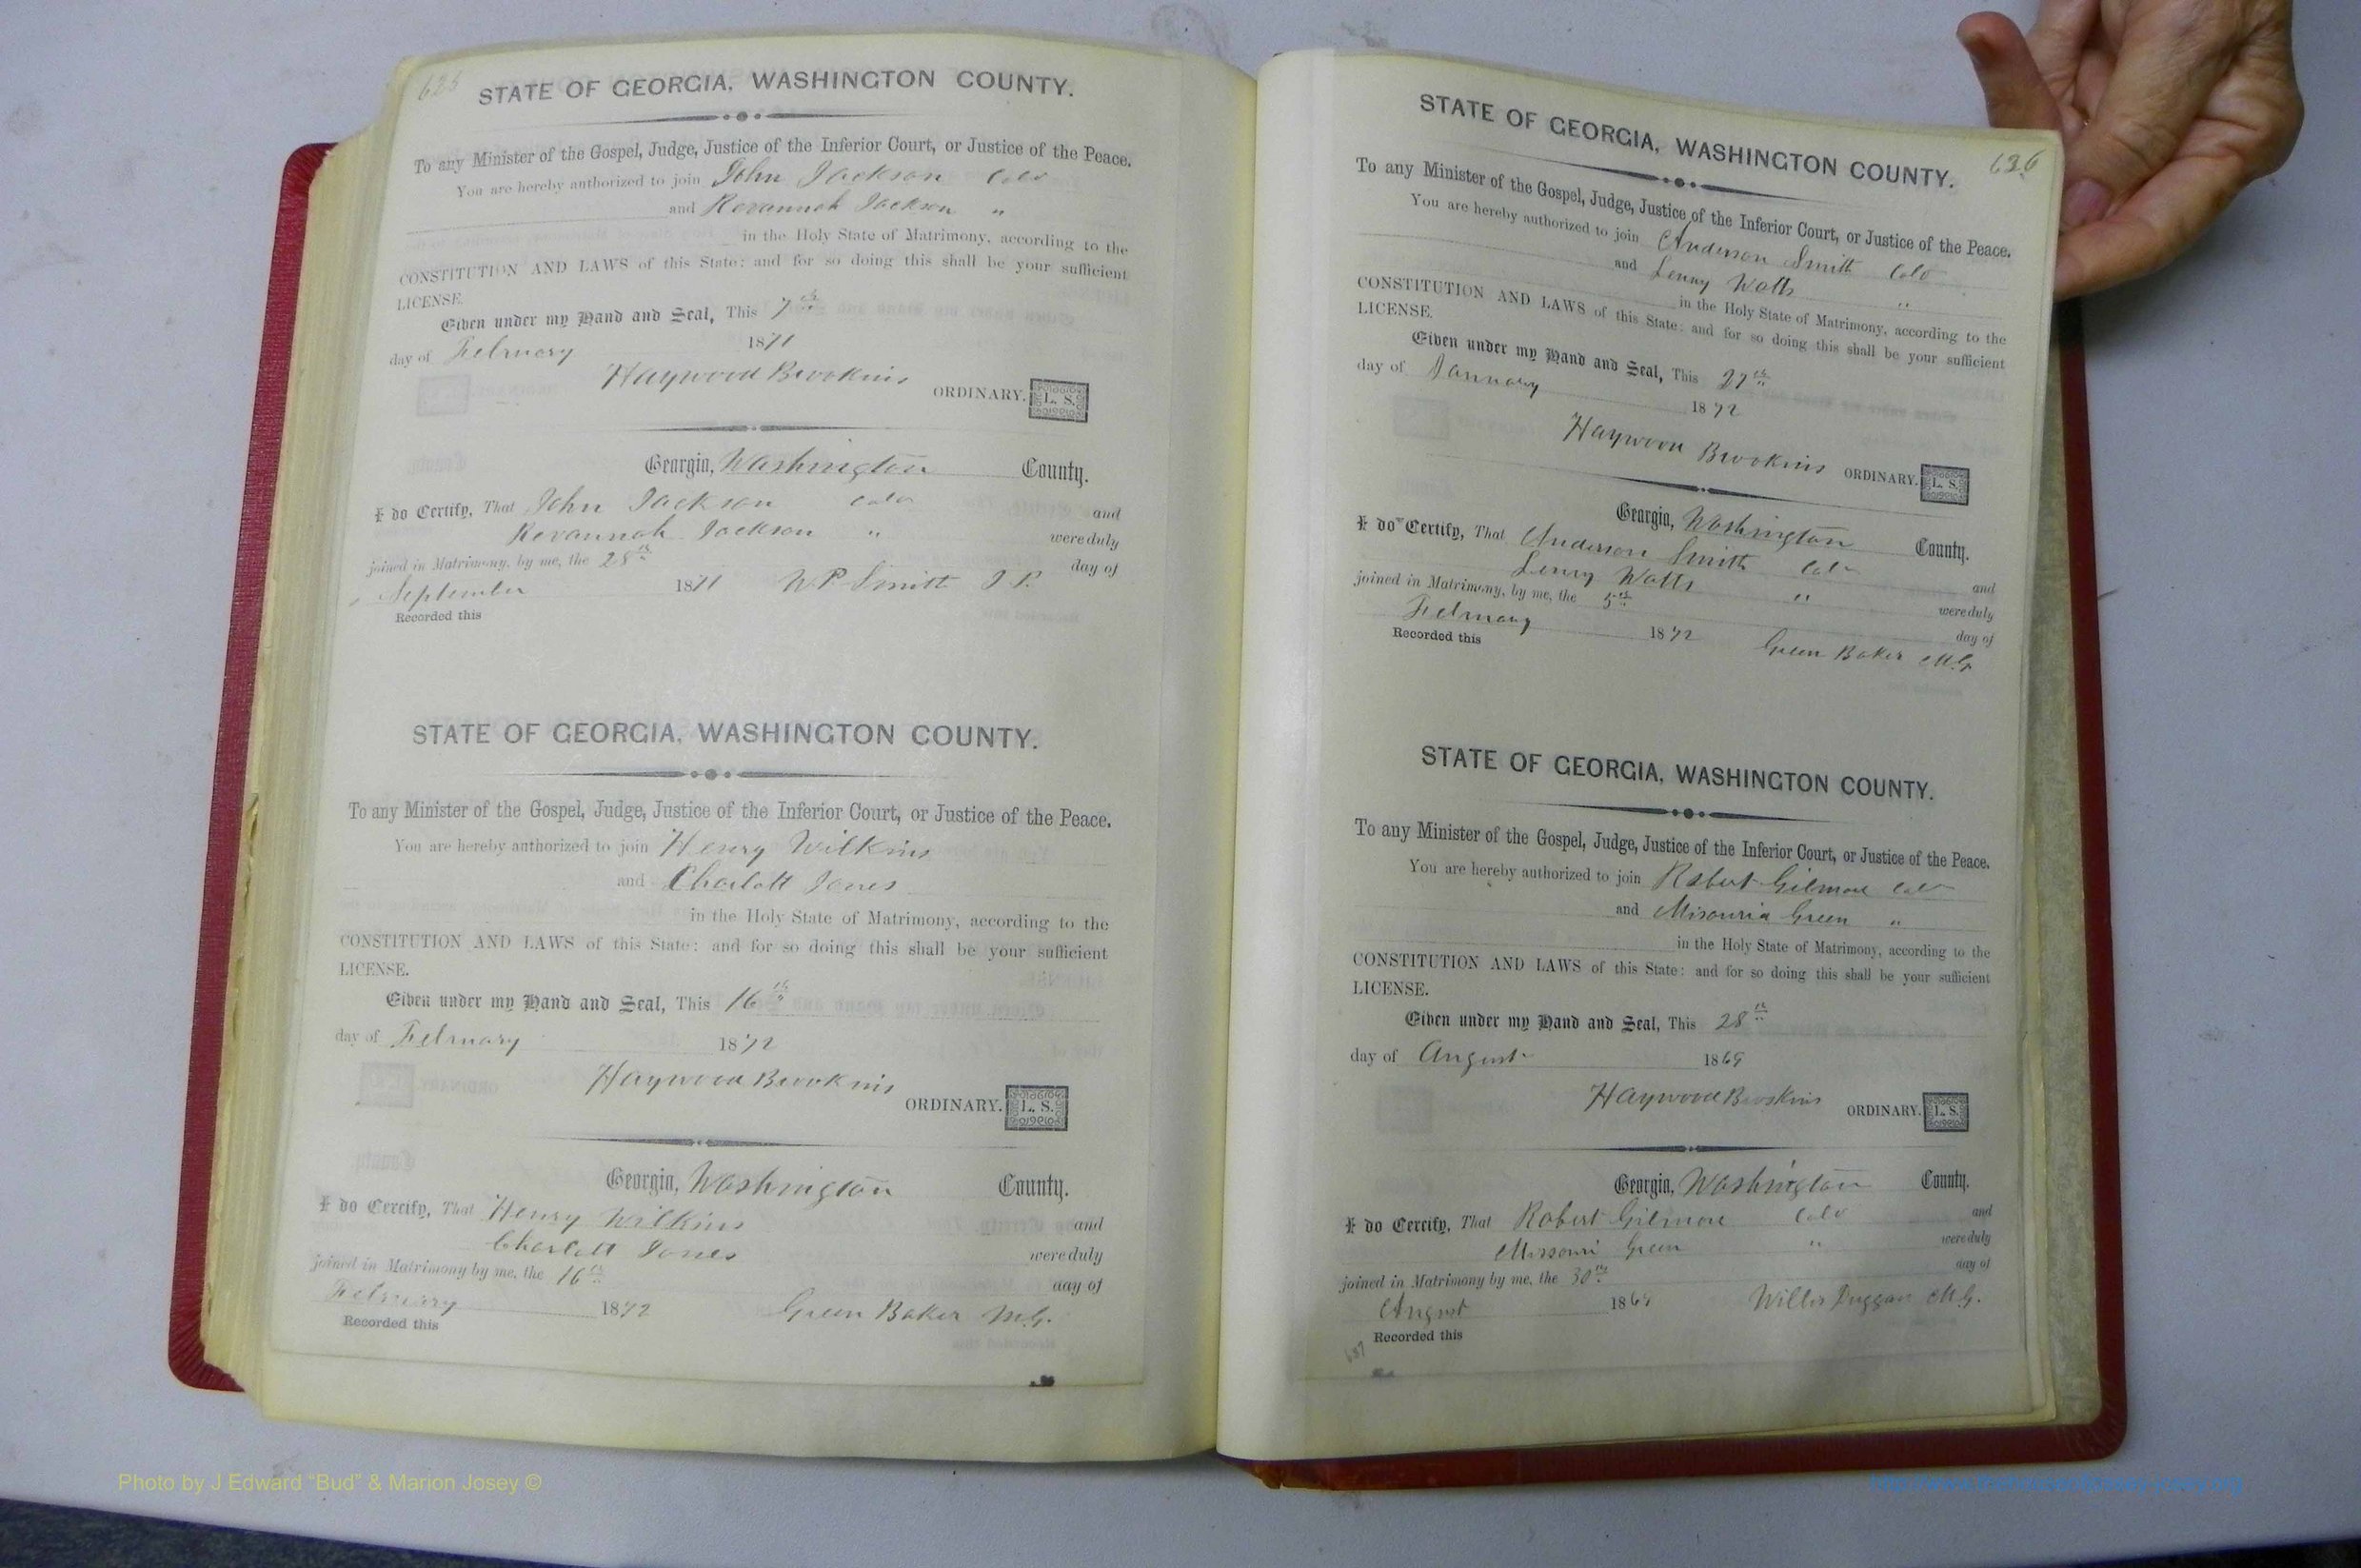 625
STATE OF GEORGIA, WASHINGTON COUNTY.
To any Minister of the Gospel, Judge, Justice of the Inferior Court, or Justice of the Peace.
You are hereby authorized to join John Jackson Cold
and Kevannah Jackson "
in the Holy State of Matrimony, according to the
CONSTITUTION AND LAWS of this State: and for so doing this shall be your sufficient
LICENSE.
Given under my Hand and Seal, This 7th
day of February 1871
Haywood Brookins ORDINARY. L. S.
Georgia, Washington County.
I do Certify, That John Jackson Cold and
Kevannah Jackson " were duly
joined in Matrimony, by me, the 28th day of
September 1871 W P Smith J P.
Recorded this
STATE OF GEORGIA, WASHINGTON COUNTY.
To any Minister of the Gospel, Judge, Justice of the Inferior Court, or Justice of the Peace.
You are hereby authorized to join Henry Wilkins
and Charlott Jones
in the Holy State of Matrimony, according to the
CONSTITUTION AND LAWS of this State: and for so doing this shall be your sufficient
LICENSE.
Given under my Hand and Seal, This 16th
day of February 1872
Haywood Brookins ORDINARY. L. S.
Georgia, Washington County.
I do Certify, That Henry Wilkins and
Charlott Jones were duly
joined in Matrimony by me, the 16th day of
February 1872 Green Baker M.G.
Recorded this
626
STATE OF GEORGIA, WASHINGTON COUNTY.
To any Minister of the Gospel, Judge, Justice of the Inferior Court, or Justice of the Peace.
You are hereby authorized to join Anderson Smith Cold
and Lenny Watts "
in the Holy State of Matrimony, according to the
CONSTITUTION AND LAWS of this State: and for so doing this shall be your sufficient
LICENSE.
Given under my Hand and Seal, This 27th
day of January 1872
Haywood Brookins ORDINARY. L. S.
Georgia, Washington County.
I do Certify, That Anderson Smith Cold and
Lenny Watts " were duly
joined in Matrimony, by me, the 5th day of
February 1872 Green Baker M.G.
Recorded this
STATE OF GEORGIA, WASHINGTON COUNTY.
To any Minister of the Gospel, Judge, Justice of the Inferior Court, or Justice of the Peace.
You are hereby authorized to join Robert Gilmore Cold
and Misouria Green "
in the Holy State of Matrimony, according to the
CONSTITUTION AND LAWS of this State: and for so doing this shall be your sufficient
LICENSE.
Given under my Hand and Seal, This 28th
day of August 1869
Haywood Brookins ORDINARY. L. S.
Georgia, Washington County.
I do Certify, That Robert Gilmore Cold and
Missouri Green " were duly
joined in Matrimony by me, the 30th day of
August 1869 Willis Duggan M.G.
Recorded this
Photo by J Edward "Bud" & Marion Josey ©